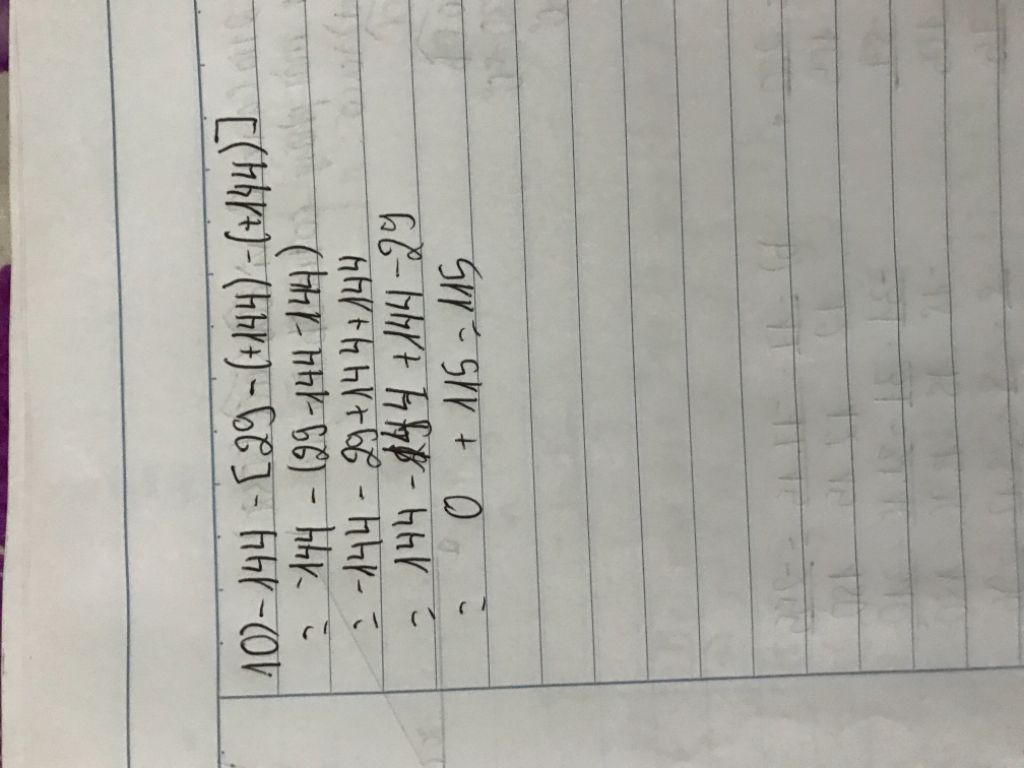 10) -144 - [29 - (+144) - (+144)]
= -144 - (29 - 144 - 144)
= -144 - 29 + 144 + 144
= 144 - 144 + 144 - 29
= 0 + 115 = 115